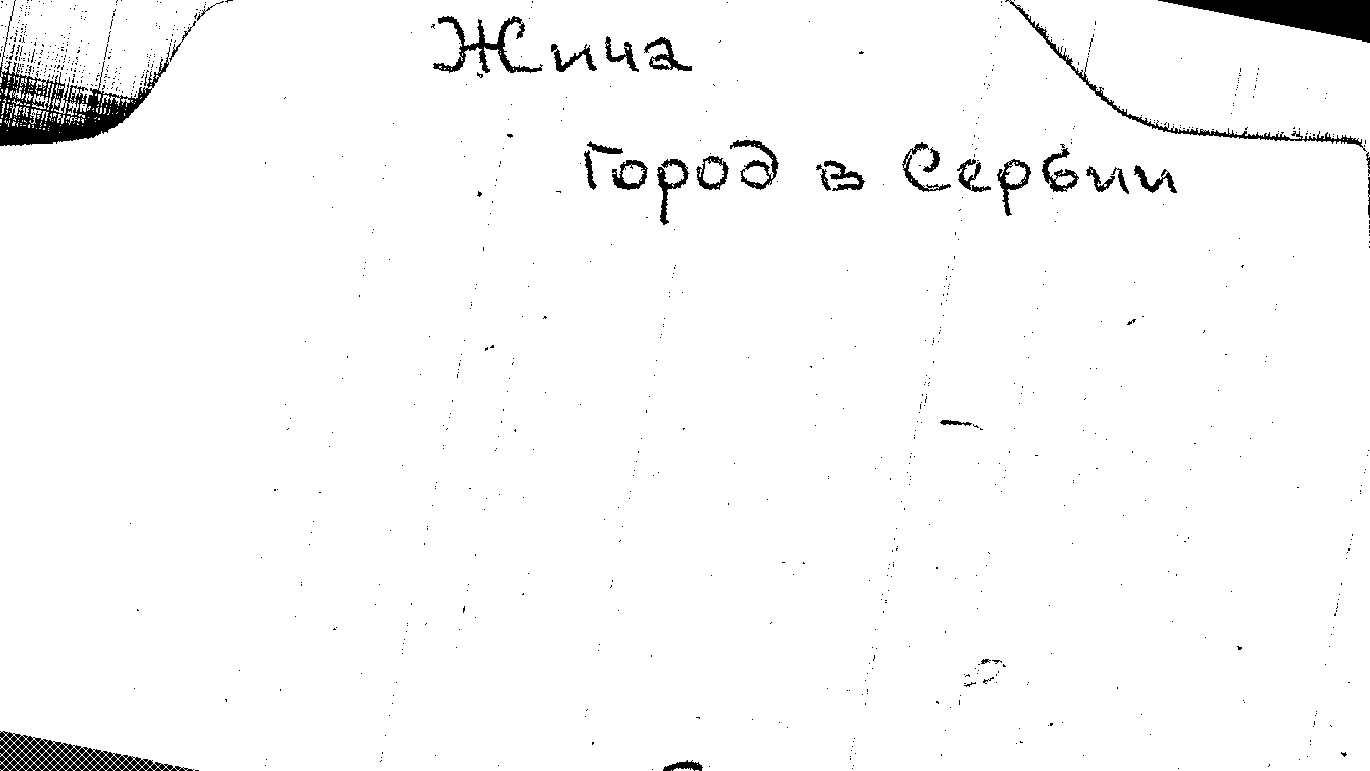 Жича
Город в Сербии